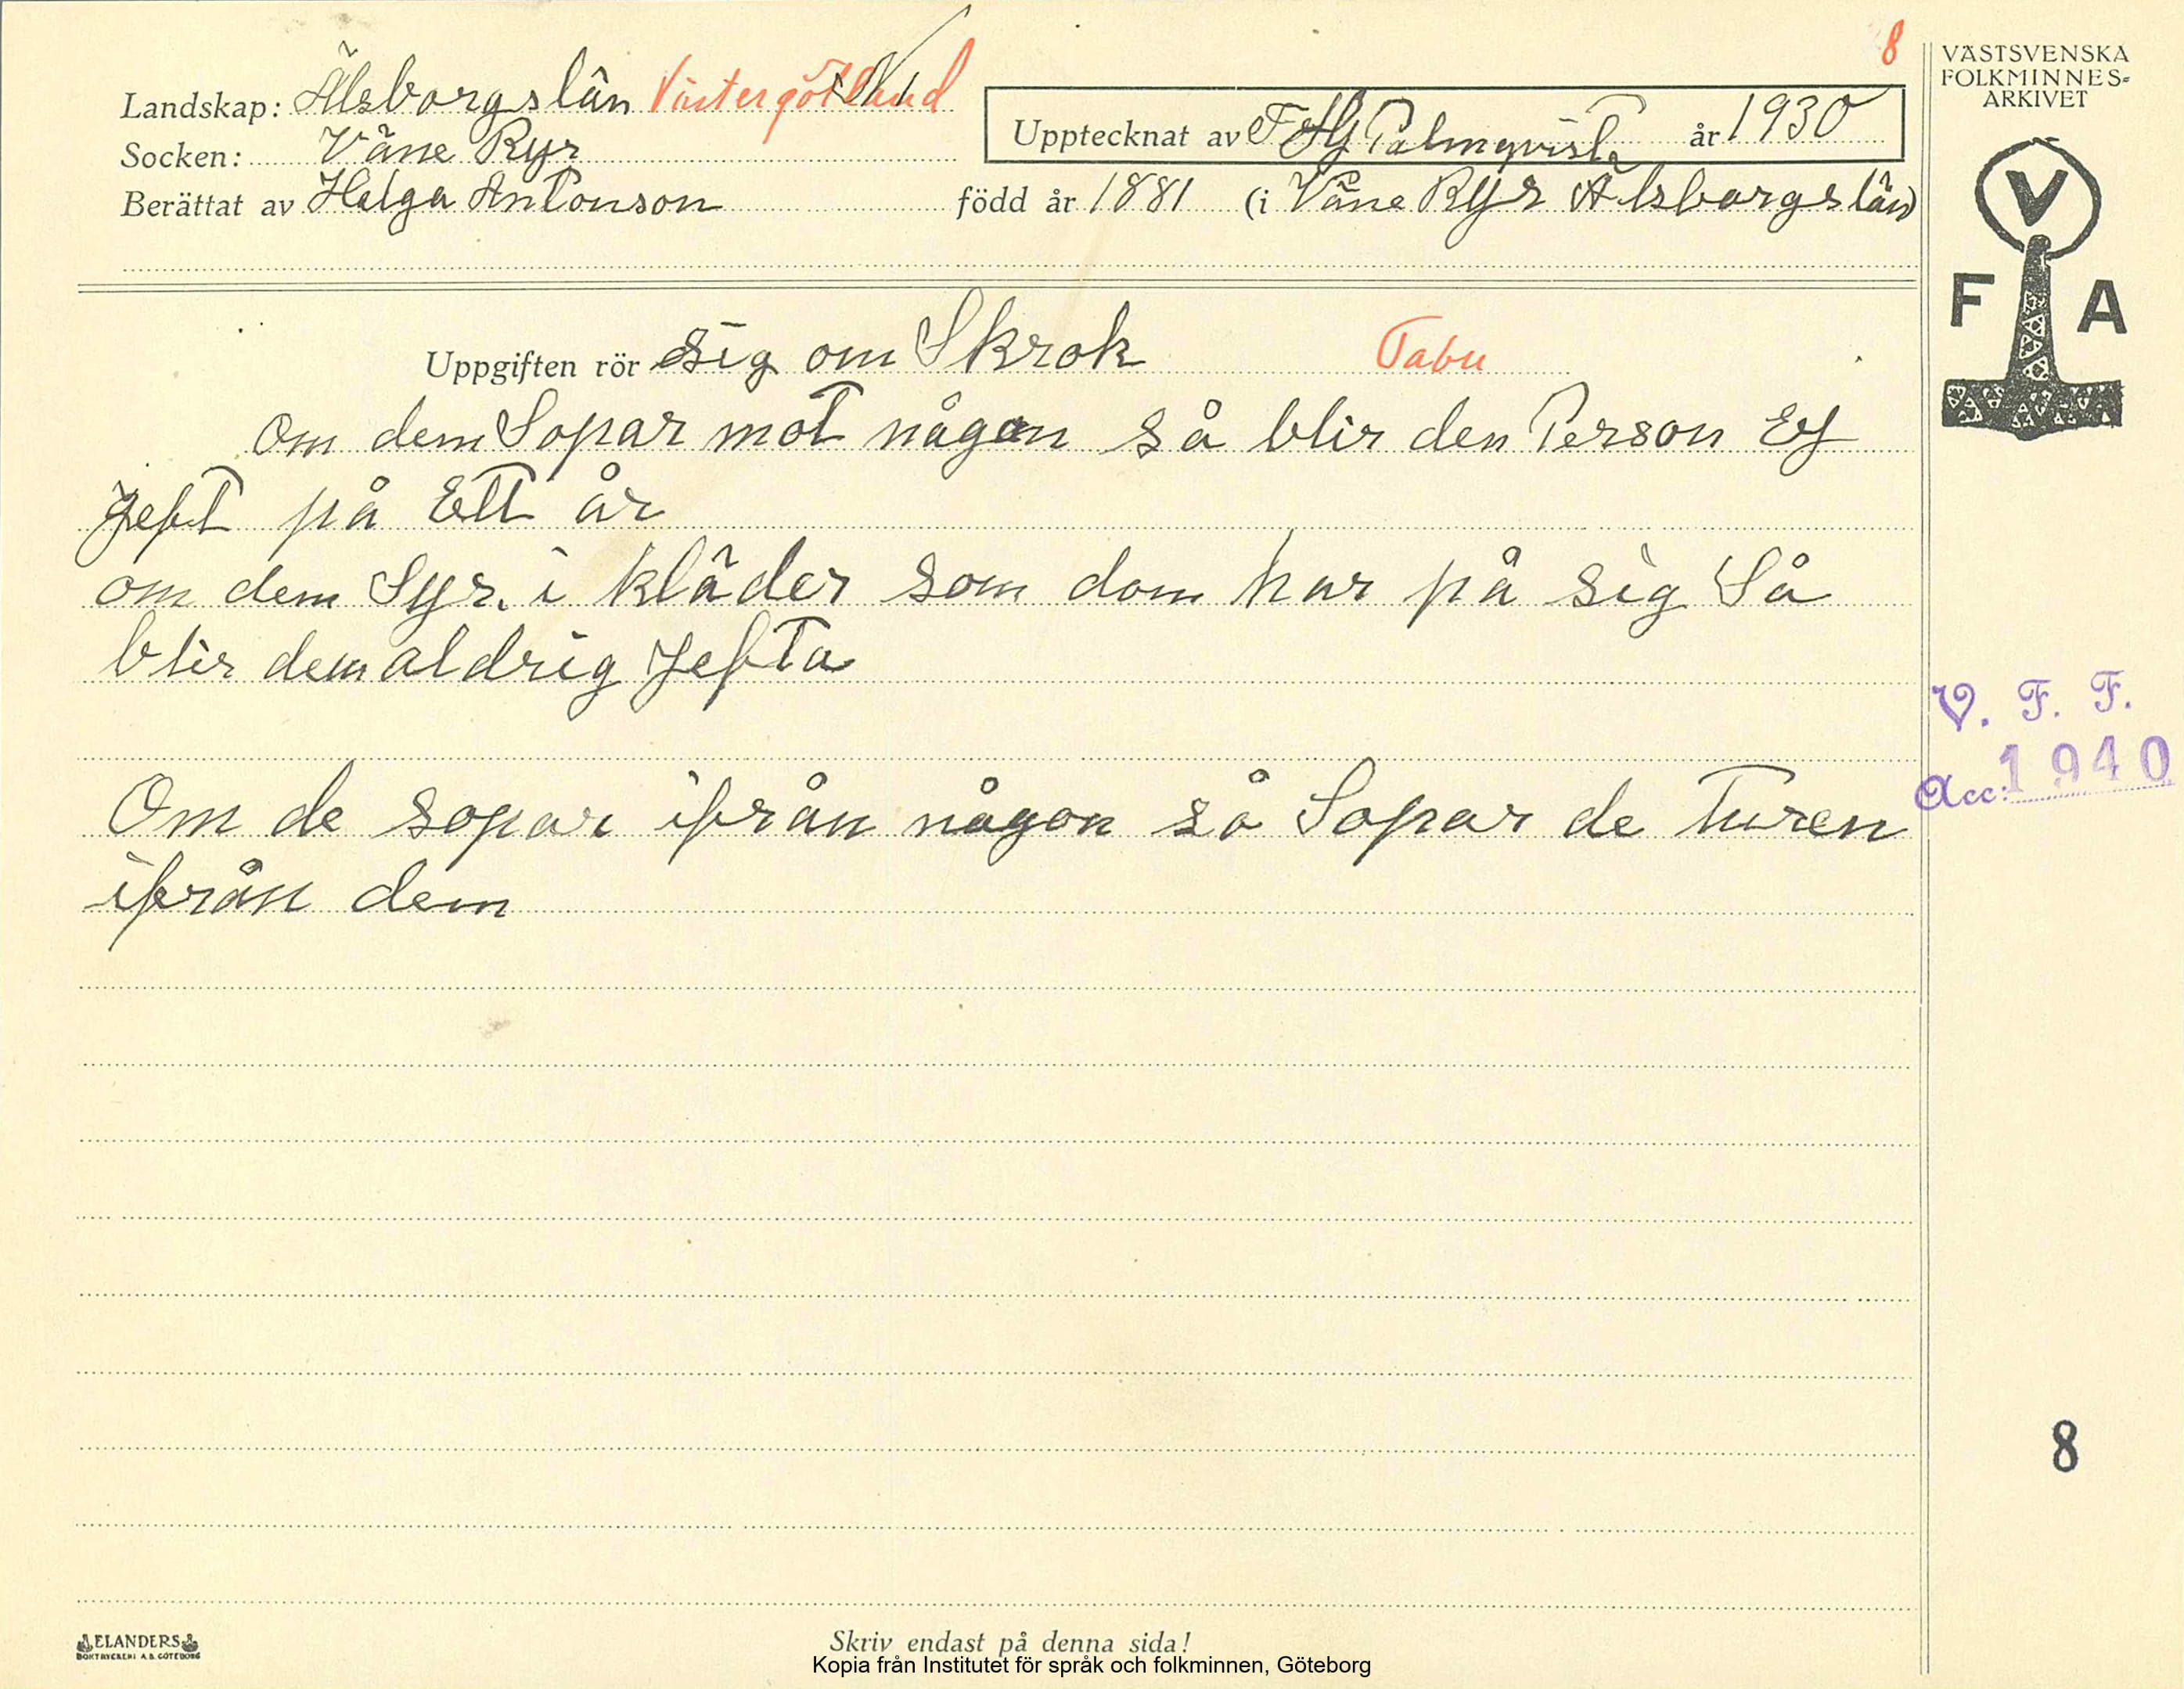 8
VÄSTSVENSKA
FOLKMINNES=
ARKIVET
Landskap: Älsborgslän Västergötland
Upptecknat av F Hj Palmqvist år 1930
Socken: Väne Ryr
Berättat av Helga Antonson född år 1881 (i Väne Ryr Älsborgslän)
V
F A
Uppgiften rör sig om Skrok Tabu
om dem Sopar mot någon så blir den Person Ej
jeft på Ett år
om dem Syr. i kläder som dom har på sig Så
blir dem aldrig jefta
V. F. F.
Acc: 1940
Om de sopar ifrån någon så Sopar de Turen
ifrån dem
8
ELANDERS
BOKTRYCKERI A.B. GÖTEBORG
Skriv endast på denna sida!
Kopia från Institutet för språk och folkminnen, Göteborg